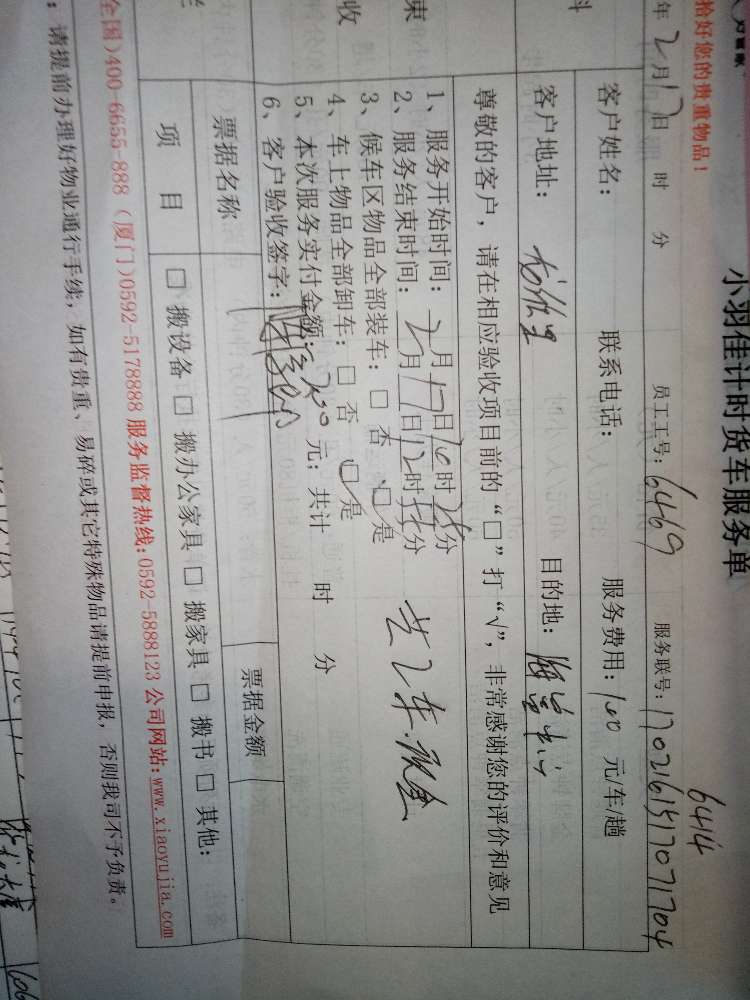 拾好您的贵重物品！
小羽佳计时货车服务单
6414
年2月17日 时 分 员工工号：6469 服务联号：170216151707 1704
客户姓名： 联系电话： 服务费用：160 元/车/趟
客户地址： 目的地：
尊敬的客户，请在相应验收项目前的“□”打“√”，非常感谢您的评价和意见
束
收
1、服务开始时间：2月17日10时25分
2、服务结束时间：2月17日12时55分
3、候车区物品全部装车：□ 否 □是
4、车上物品全部卸车：□ 否 □是
5、本次服务实付金额： 元；共计 时 分
6、客户验收签字：
共2车.现金
票据名称 票据金额
项 目 □ 搬设备 □ 搬办公家具 □ 搬家具 □ 搬书 □ 其他：
全国)400-6655-888 (厦门)0592-5178888 服务监督热线:0592-5888123 公司网站:www.xiaoyujia.com
：请提前办理好物业通行手续，如有贵重、易碎或其它特殊物品请提前申报，否则我司不予负责。